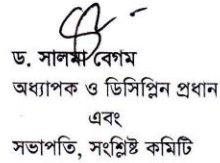 ড. সালমা বেগম
অধ্যাপক ও ডিসিপ্লিন প্রধান
এবং
সভাপতি, সংশ্লিষ্ট কমিটি